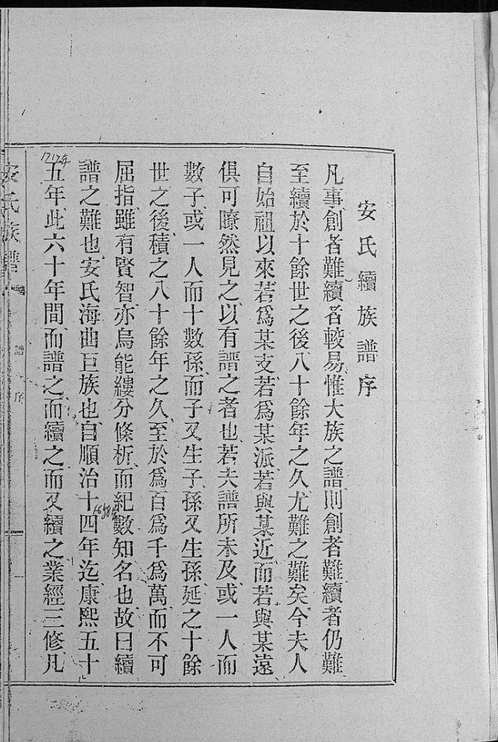 安氏續族譜序
凡事創者難續者較易惟大族之譜則創者難續者仍難
至續於十餘世之後八十餘年之久尤難之難矣今夫人
自始祖以來若爲某支若爲某派若與某近而若與某遠
俱可瞭然見之以有譜之者也若夫譜所未及或一人而
數子或一人而十數孫而子又生子孫又生孫延之十餘
世之後積之八十餘年之久至於爲百爲千爲萬而不可
屈指雖有賢智亦烏能縷分條析而紀數知名也故曰續
譜之難也安氏海曲巨族也自順治十四年迄康熙五十
五年此六十年間而譜之而續之而又續之業經三修凡
1717年
安氏族譜
譜序
一